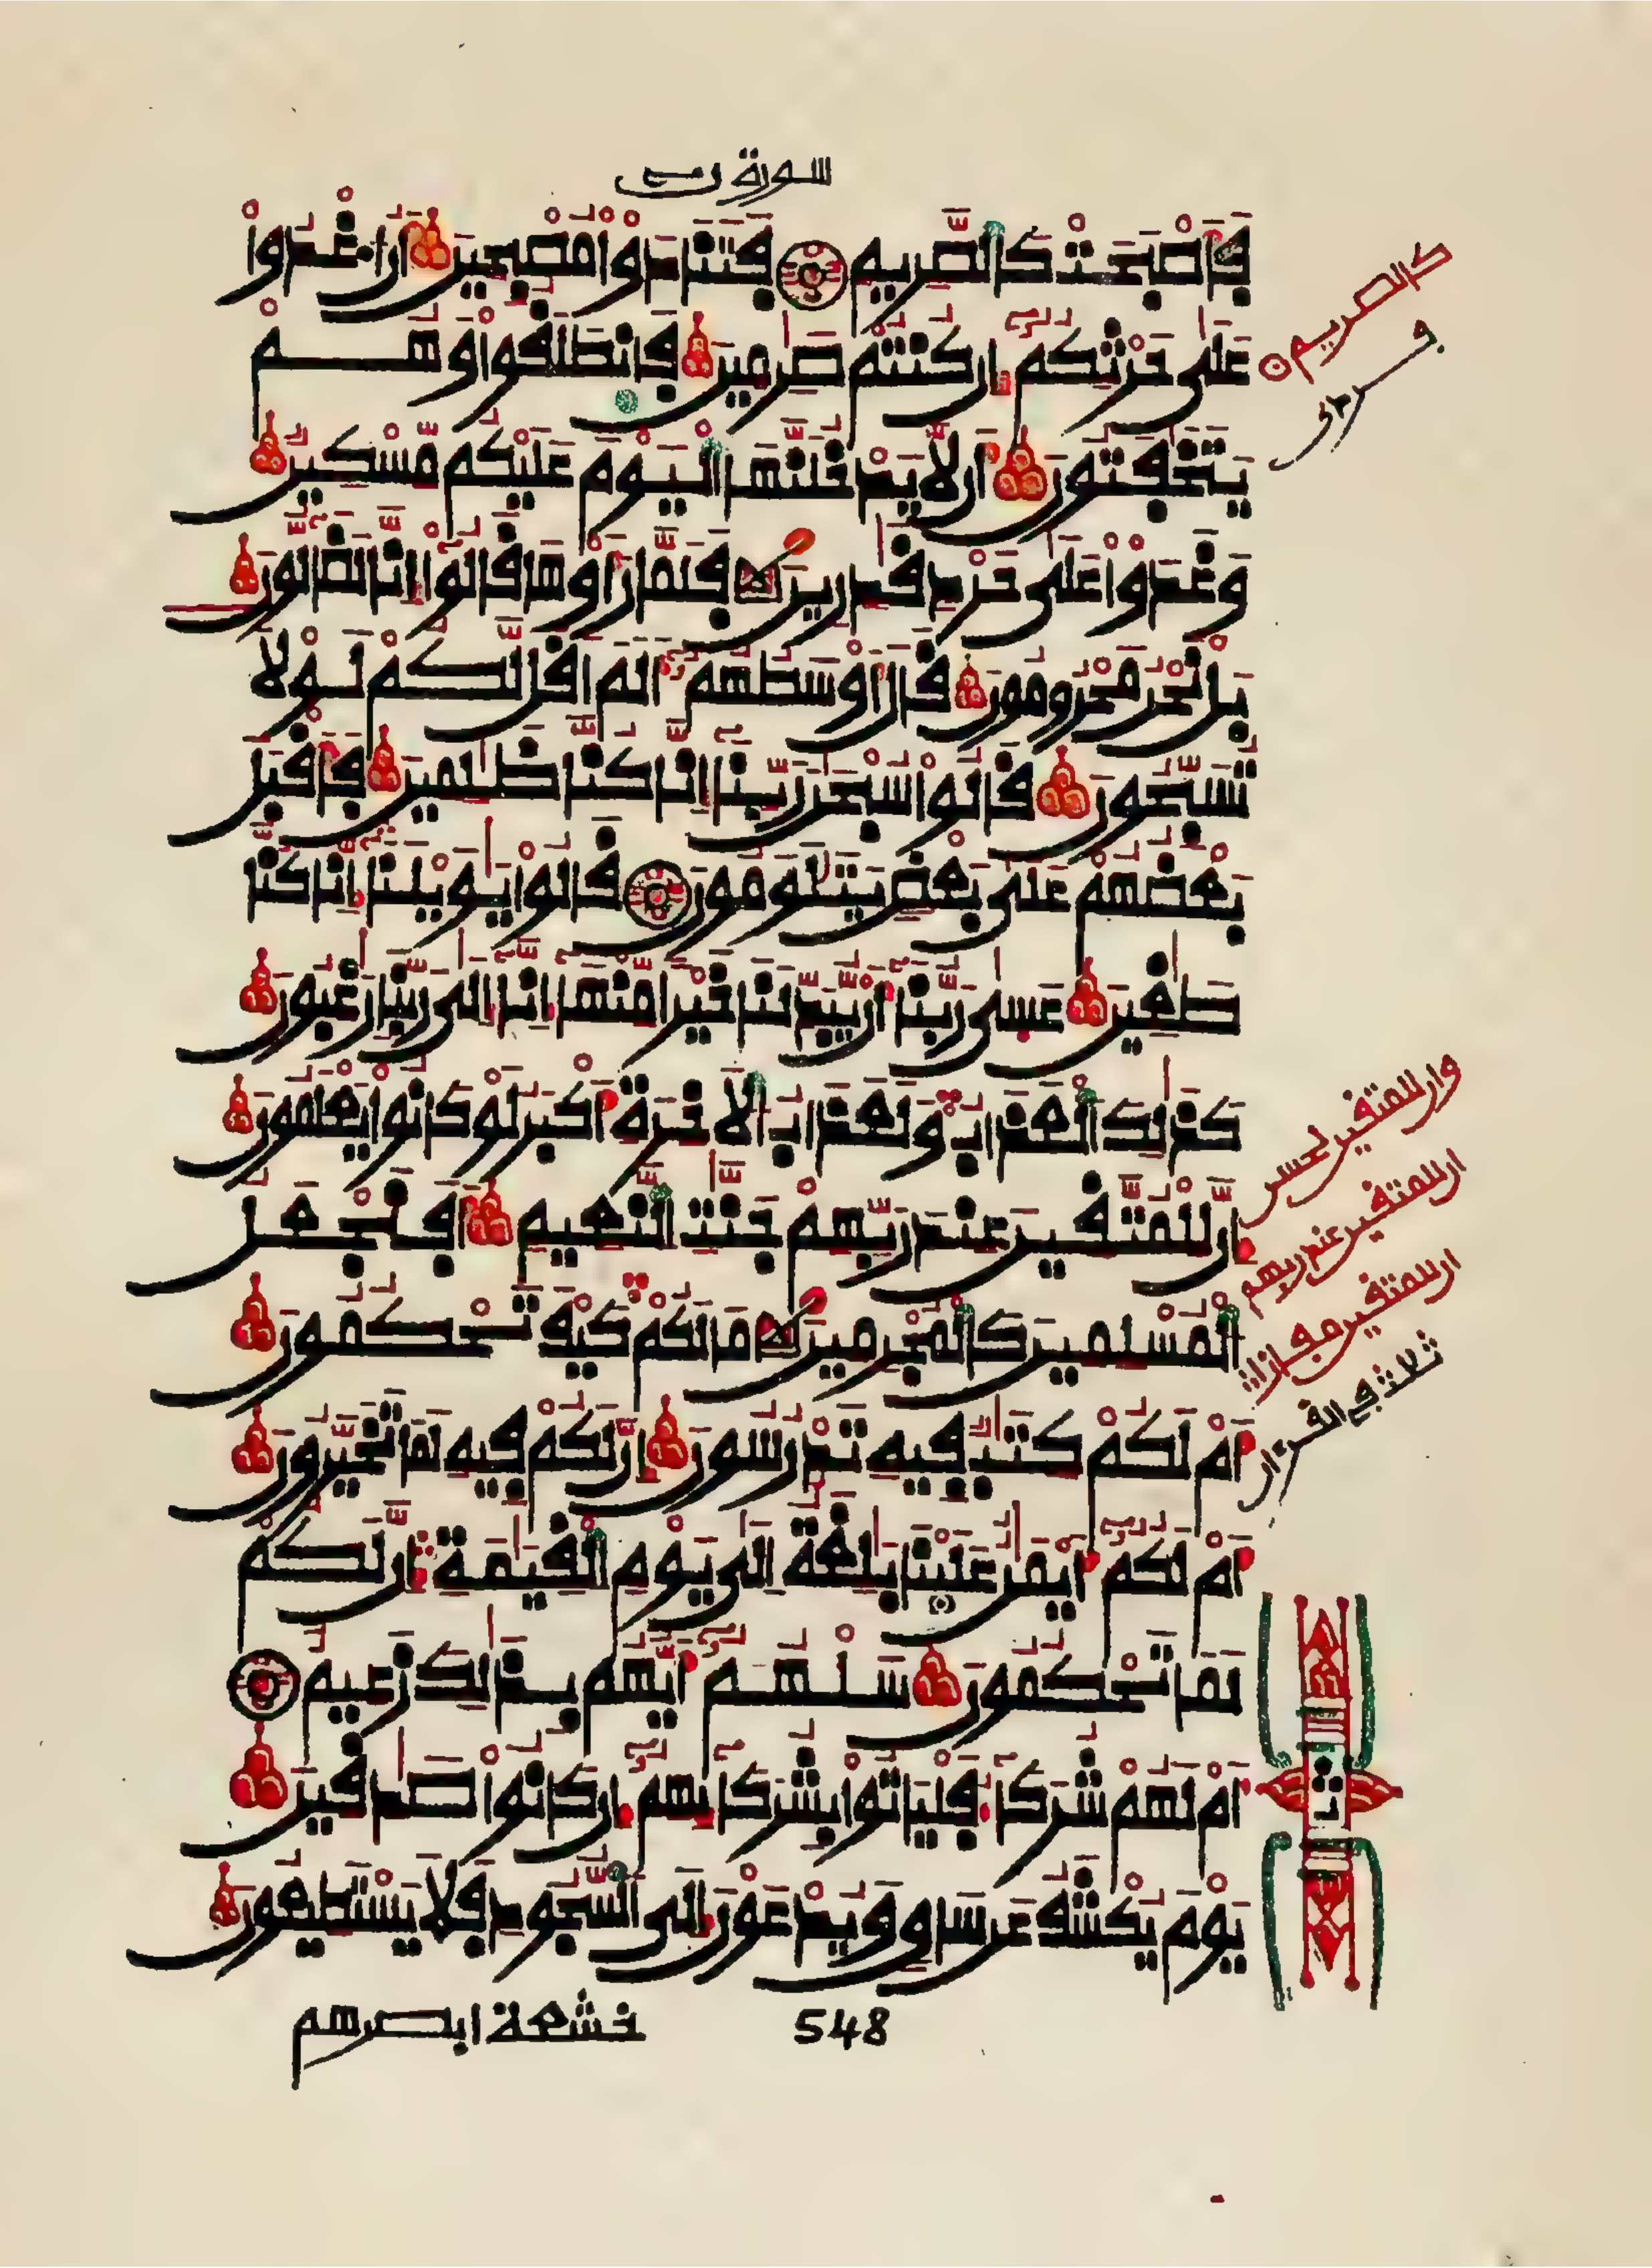 سورة ن
فَأَصْبَحَتْ كَالصَّرِيمِ فَتَنَادَوْا مُصْبِحِينَ أَنُ اغْدُوا
عَلَىٰ حَرْثِكُمُ إِن كُنتُمْ صَٰرِمِينَ فَانطَلَقُوا وَهُمْ
يَتَخَٰفَتُونَ أَن لَّا يَدْخُلَنَّهَا الْيَوْمَ عَلَيْكُم مِّسْكِينٌ
وَغَدَوْا عَلَىٰ حَرْدٍ قَٰدِرِينَ فَلَمَّا رَأَوْهَا قَالُوا إِنَّا لَضَالُّونَ
بَلْ نَحْنُ مَحْرُومُونَ قَالَ أَوْسَطُهُمُ أَلَمَ اقُل لَّكُمْ لَوْلَا
تُسَبِّحُونَ قَالُوا سُبْحَٰنَ رَبِّنَا إِنَّا كُنَّا ظَٰلِمِينَ فَأَقْبَلَ
بَعْضُهُمْ عَلَىٰ بَعْضٍ يَتَلَٰوَمُونَ قَالُوا يَٰوَيْلَنَا إِنَّا كُنَّا
طَٰغِينَ عَسَىٰ رَبُّنَا أَن يُبَدِّلَنَا خَيْرًا مِّنْهَا إِنَّا إِلَىٰ رَبِّنَا رَٰغِبُونَ
كَذَٰلِكَ الْعَذَابُ وَلَعَذَابُ الَاخِرَةِ أَكْبَرُ لَوْ كَانُوا يَعْلَمُونَ
إِنَّ لِلْمُتَّقِينَ عِندَ رَبِّهِمْ جَنَّٰتِ النَّعِيمِ أَفَنَجْعَلُ
الْمُسْلِمِينَ كَالْمُجْرِمِينَ مَا لَكُمْ كَيْفَ تَحْكُمُونَ
أَمْ لَكُمْ كِتَٰبٌ فِيهِ تَدْرُسُونَ إِنَّ لَكُمْ فِيهِ لَمَا تَخَيَّرُونَ
أَمْ لَكُمُ أَيْمَٰنٌ عَلَيْنَا بَٰلِغَةٌ إِلَىٰ يَوْمِ الْقِيَٰمَةِ إِنَّ لَكُمْ
لَمَا تَحْكُمُونَ سَلْهُمُ أَيُّهُم بِذَٰلِكَ زَعِيمٌ
أَمْ لَهُمْ شُرَكَاءُ فَلْيَاتُوا بِشُرَكَائِهِمُ إِن كَانُوا صَٰدِقِينَ
يَوْمَ يُكْشَفُ عَن سَاقٍ وَيُدْعَوْنَ إِلَى السُّجُودِ فَلَا يَسْتَطِيعُونَ
548
خشعة ابصرهم
كالصريم
وان للمتقين لحسن
ان للمتقين عند ربهم
ان للمتقين مفازا
ثلاث في القرءان
ثمن